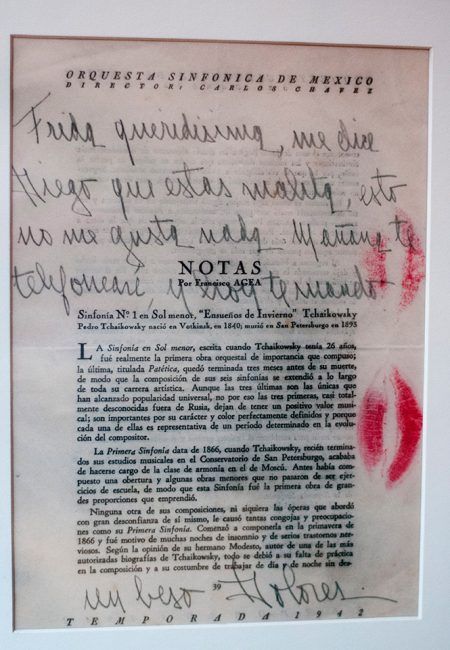 ORQUESTA SINFONICA DE MEXICO
DIRECTOR: CARLOS CHAVEZ
Frida queridísima, me dice
Diego que estas malita, esto
no me gusta nada. Mañana te
telefonearé, y hoy te mando
NOTAS
Por Francisco AGEA
Sinfonía Nº 1 en Sol menor, "Ensueños de Invierno" Tchaikowsky
Pedro Tchaikowsky nació en Votkinsk, en 1840; murió en San Petersburgo en 1893
LA Sinfonía en Sol menor, escrita cuando Tchaikowsky tenía 26 años,
fué realmente la primera obra orquestal de importancia que compuso;
la última, titulada Patética, quedó terminada tres meses antes de su muerte,
de modo que la composición de sus seis sinfonías se extendió a lo largo
de toda su carrera artística. Aunque las tres últimas son las únicas que
han alcanzado popularidad universal, no por eso las tres primeras, casi total-
mente desconocidas fuera de Rusia, dejan de tener un positivo valor musi-
cal; son importantes por su carácter y color perfectamente definidos y porque
cada una de ellas es representativa de un período determinado en la evolu-
ción del compositor.
La Primera Sinfonía data de 1866, cuando Tchaikowsky, recién termina-
dos sus estudios musicales en el Conservatorio de San Petersburgo, acababa
de hacerse cargo de la clase de armonía en el de Moscú. Antes había com-
puesto una obertura y algunas obras menores que no pasaron de ser ejer-
cicios de escuela, de modo que esta Sinfonía fué la primera obra de gran-
des proporciones que emprendió.
Ninguna otra de sus composiciones, ni siquiera las óperas que abordó
con gran desconfianza de sí mismo, le causó tantas congojas y preocupacio-
nes como su Primera Sinfonía. Comenzó a componerla en la primavera de
1866 y fué motivo de muchas noches de insomnio y de serios trastornos ner-
viosos. Según la opinión de su hermano Modesto, autor de una de las más
autorizadas biografías de Tchaikowsky, todo se debió a su falta de práctica
en la composición y a su costumbre de trabajar de día y de noche sin des-
39
un beso Dolores
TEMPORADA 1942